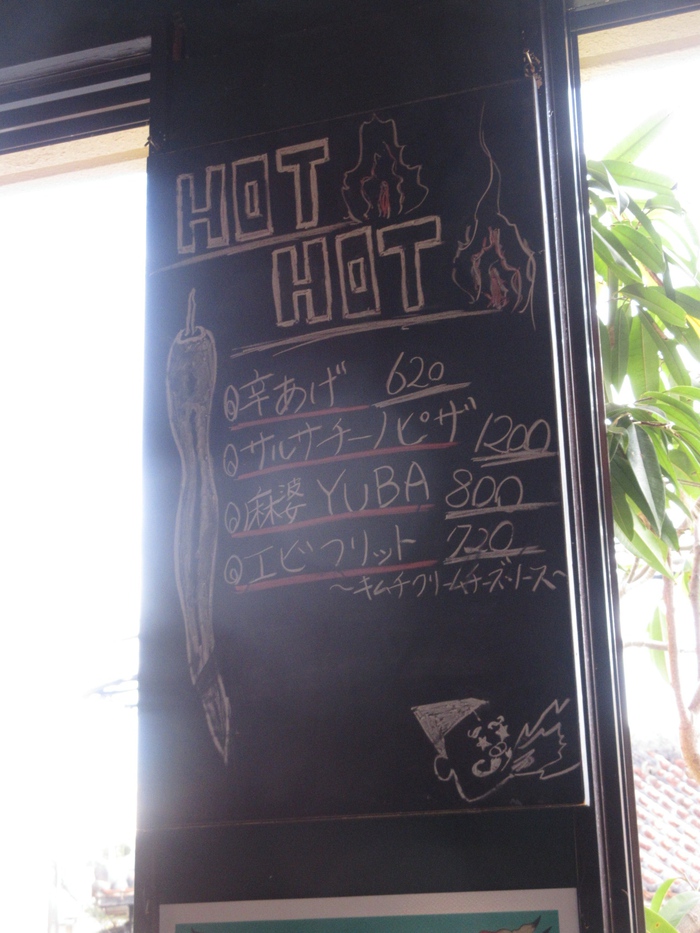 HOT
HOT
辛あげ 620
サルサチーノピザ 1200
麻婆 YUBA 800
エビフリット 720
~キムチクリームチーズソース~